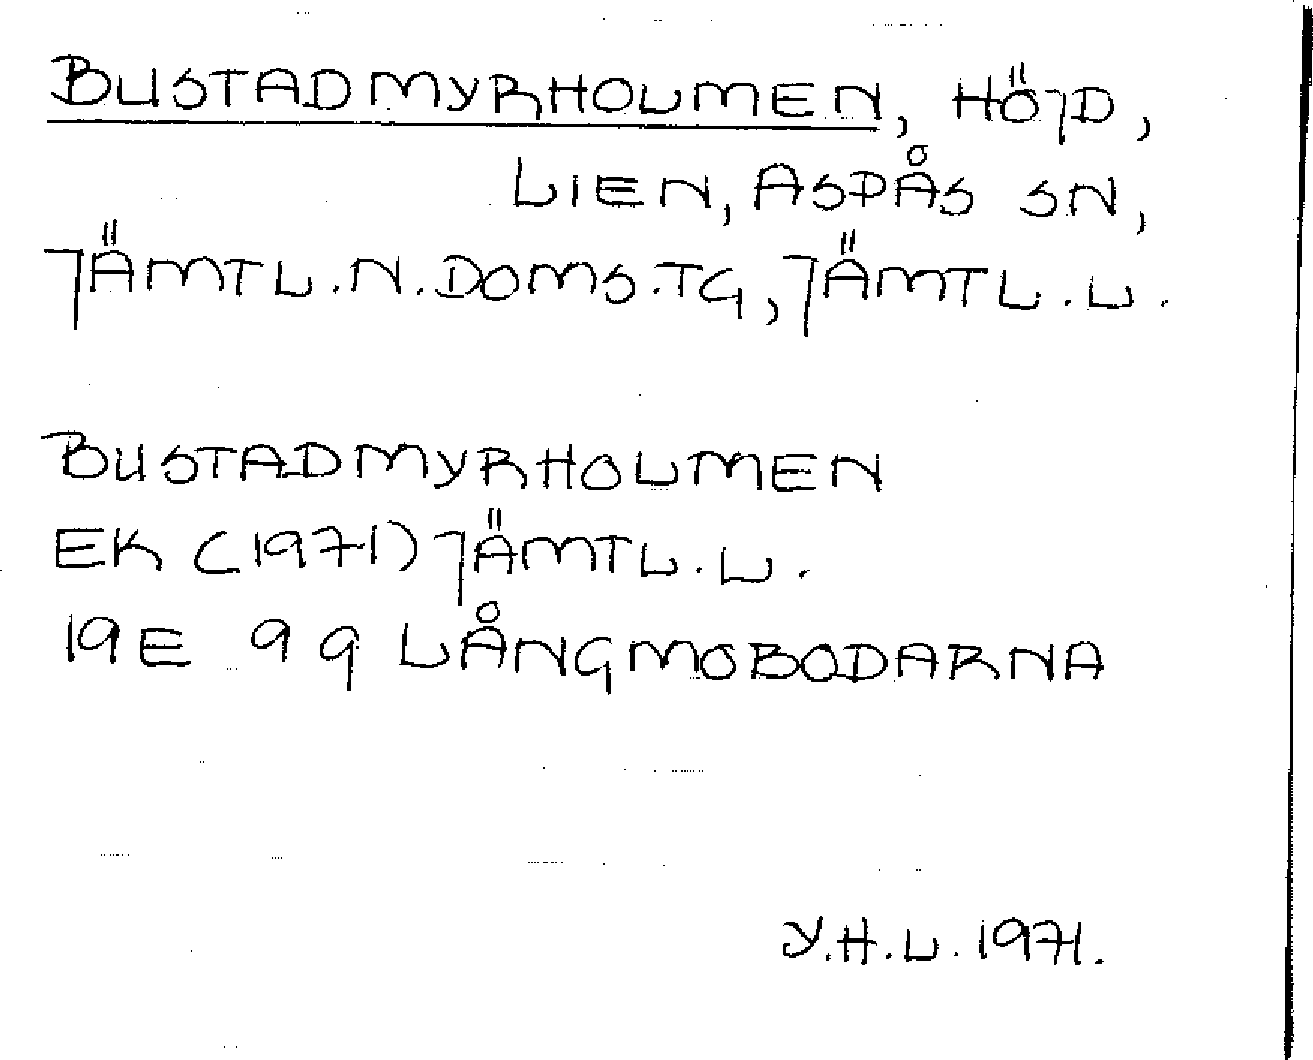 BUSTADMYRHOLMEN, HÖJD,
LIEN, ASPÅS SN,
JÄMTL.N.DOMS.TG, JÄMTL.L.
BUSTADMYRHOLMEN
EK (1971) JÄMTL.L.
19E 9g LÅNGMOBODARNA
Y.H.L. 1971.